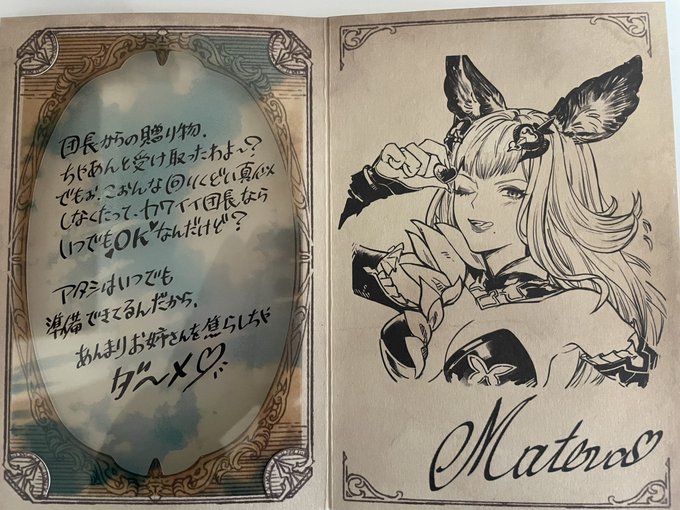 団長からの贈り物、
ちゃあんと受け取ったわよ〜?
でもぉ、こおんな回りくどい真似
しなくたって、カワイイ団長なら
いつでも"OK"なんだけど?
アタシはいつでも
準備できてるんだから、
あんまりお姉さんを焦らしちゃ
ダ〜メ♡
Matera♡